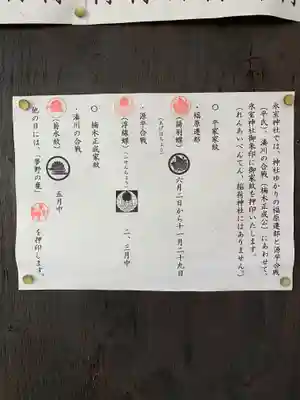 氷室神社では、神社ゆかりの福原遷都と源平合戦
(平氏)、湊川の合戦(楠木正成公)にあわせて、
氷室神社御朱印に御家紋を押印いたします。
(れんあいべんてん、稲荷神社にはありません。)
〇 平家家紋
・福原遷都
(あげはちょう)
(揚羽蝶)
六月二日から十一月二十九日
・源平合戦
(浮線蝶)
二、三月中
〇 楠木正成家紋
・湊川の合戦
(菊水紋)
五月中
他の日には、「夢野の鹿」を押印します。